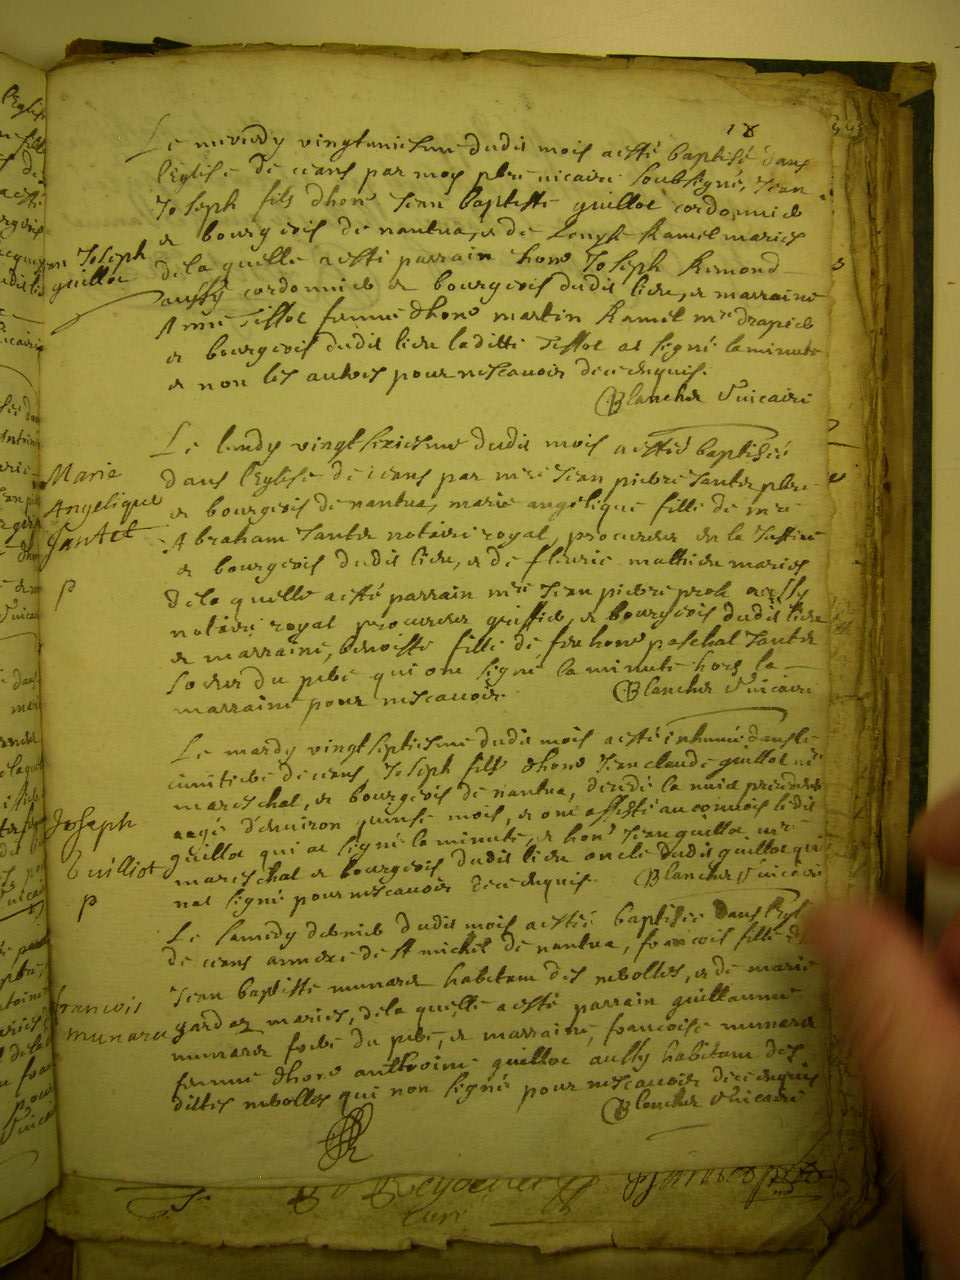 18
Le mercredy vingtuniesme dudit mois a esté baptisé dans
l'Eglise de ceans par moy pbre vicaire soubsigné, Jean
Joseph fils d'hon Jean baptiste guillot cordonnier
et bourgeois de nantua, et de Ramel mariés
Jean Joseph
guillot
de laquelle a esté parrain hon Joseph Remond
aussy cordonnier et bourgeois dudit lieu, et marraine
Anne Tissot femme d'hon martin Ramel me drapier
et bourgeois dudit lieu laditte Tissot at signé la minute
et non les autres pour ne scavoir de ce enquis.
Blanchet vicaire
Le lundy vingt sixiesme dudit mois a esté baptisée
Marie
Angelique
Jantet
p
dans l'Eglise de ceans par mre Jean pierre Jantet pbre
et bourgeois de nantua, marie angelique fille de mre
Abraham Jantet notaire royal, procureur en la Justice
et bourgeois dudit lieu, et de fleurie mathieu mariés
de laquelle a esté parrain mre Jean pierre prost aussy
notaire royal procureur greffier, et bourgeois dudit lieu
et marraine, benoiste fille de feu hon paschal Jantet
soeur du pbre qui ont signé la minute hors la
marraine pour ne scavoir
Blanchet vicaire
Le mardy vingt septiesme dudit mois a esté inhumé dans le
cimitiere de ceans, Joseph fils d'hon Jean claude guillot me
mareschal, et bourgeois de nantua, decedé la nuict precedente
aagé d'environ quinse mois, et ont assisté au convois ledit
Joseph
Guilliot
p
guillot qui at signé la minute, et hon Jean guillot me
mareschal et bourgeois dudit lieu oncle dudit guillot qui
n'at signé pour ne scavoir de ce enquis
Blanchet vicaire
Le samedy dernier dudit mois a esté baptisée dans l'Egl
de ceans annexe de St michel de nantua, francois fille de
Jean baptiste munaret habitant des neyrolles, et de marie
francois
munaret
gardaz mariés, de laquelle a esté parrain guillaume
munaret frere du pere, et marraine, francoise munaret
femme d'hon anthoine guillot aussy habitant des
dittes neyrolles qui n'ont signé pour ne scavoir de ce enquis
Blanchet vicaire
curé